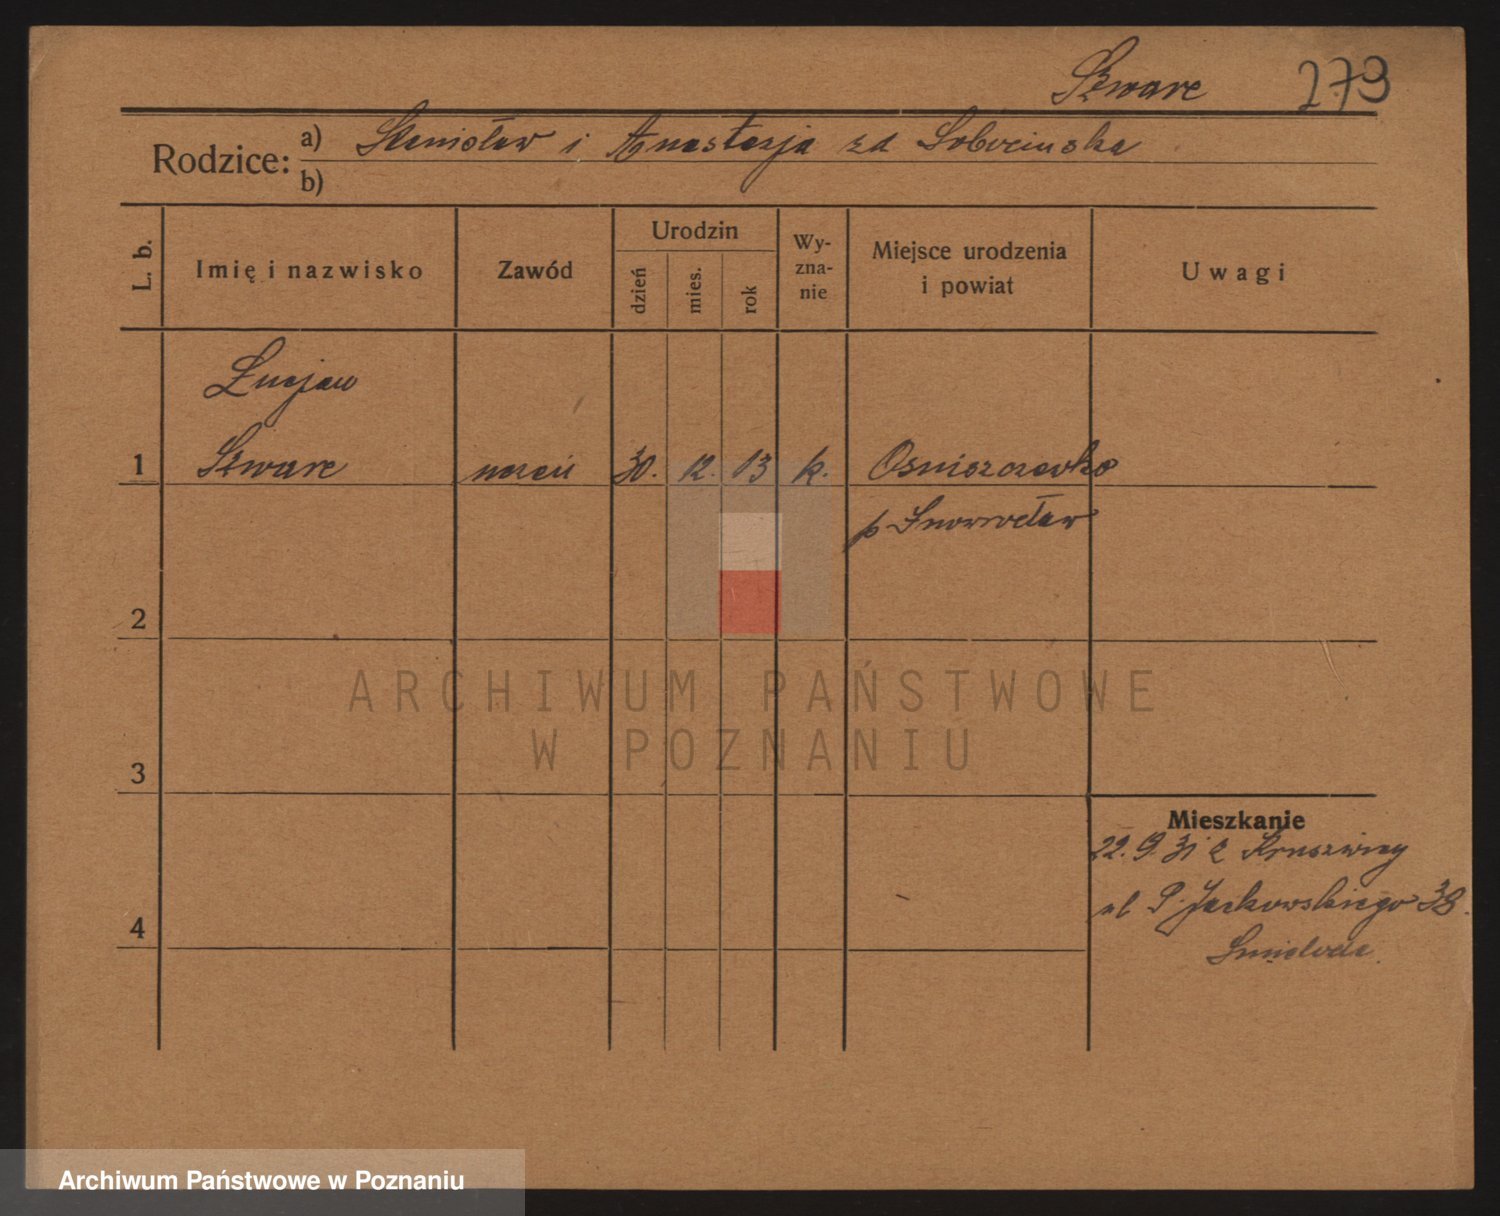 Szwarc 279
Rodzice: a) Stanisław i Anastazja zd Sobocińska
b)
L. b.
Imię i nazwisko
Zawód
Urodzin
dzień
mies.
rok
Wy-
zna-
nie
Miejsce urodzenia
i powiat
Uwagi
Łucjan
1 Szwarc uczeń 30. 12. 13 k. Ośniszczewko
p Inowrocław
2
3
4
Mieszkanie
22. 9. 31 z Kruszwicy
ul P. Jackowskiego 38.
ARCHIWUM PAŃSTWOWE
W POZNANIU
Archiwum Państwowe w Poznaniu